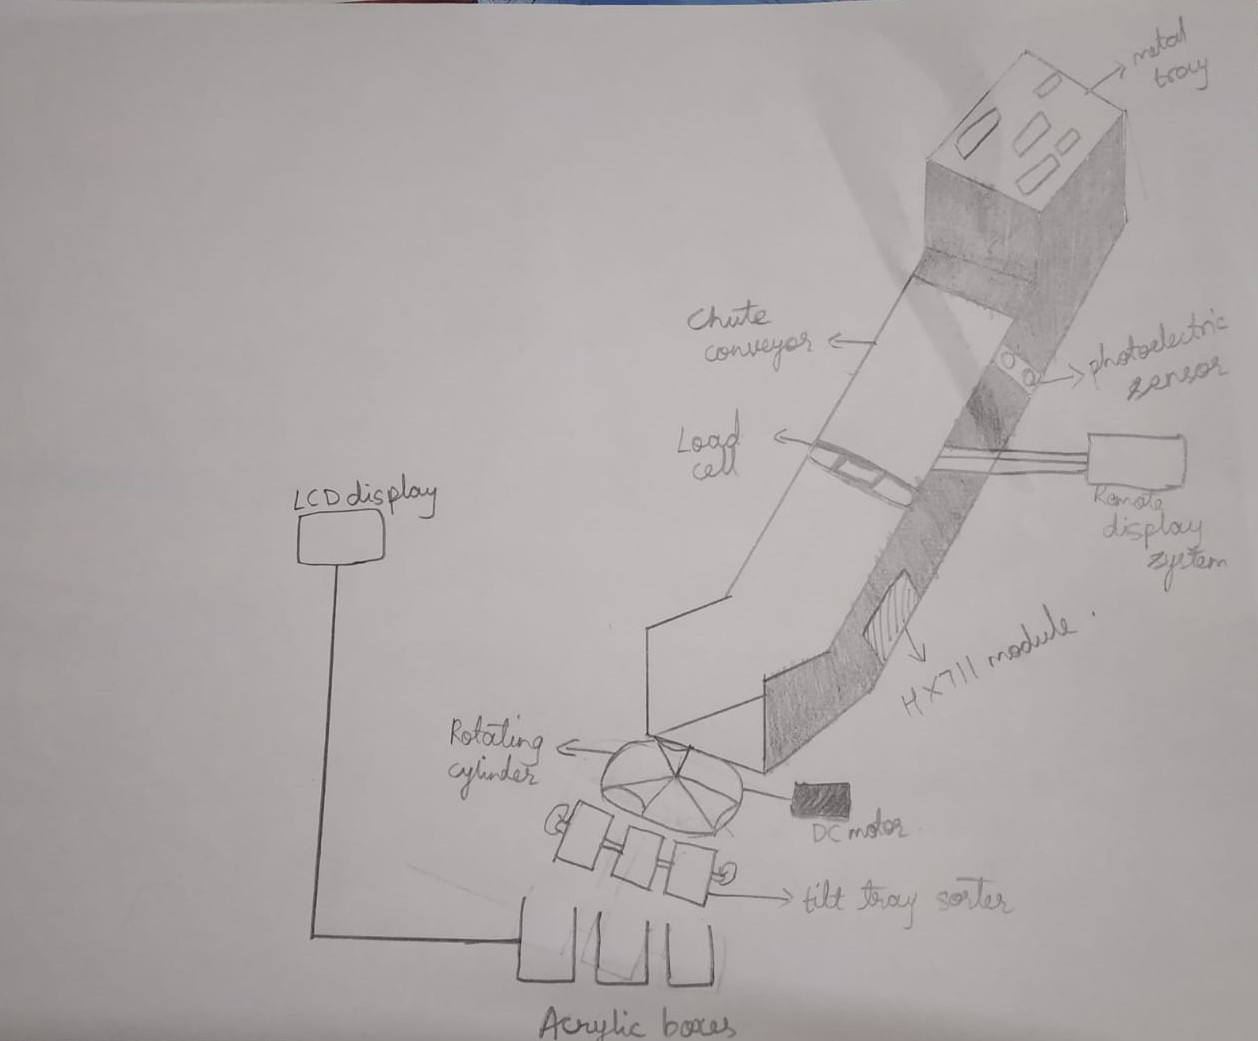 metal
tray
Chute
conveyor
photoelectric
sensor
Load
cell
LCD display
Remote
display
system
HX711 module.
Rotating
cylinder
DC motor
tilt tray sorter
Acrylic boxes